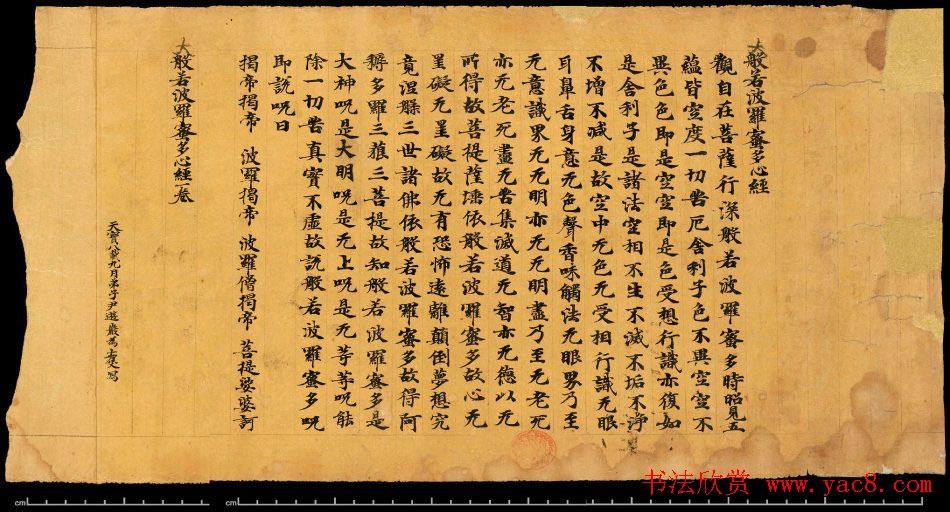 大般若波羅蜜多心經
觀自在菩薩行深般若波羅蜜多時昭見五
蘊皆空度一切苦厄舍利子色不異空空不
異色色即是空空即是色受想行識亦復如
是舍利子是諸法空相不生不滅不垢不淨
不增不減是故空中无色无受相行識无眼
耳鼻舌身意无色聲香味觸法无眼界乃至
无意識界无无明亦无无明盡乃至无老死
亦无老死盡无苦集滅道无智亦无德以无
所得故菩提薩埵依般若波羅蜜多故心无
罣礙无罣礙故无有恐怖遠離顛倒夢想究
竟涅槃三世諸佛依般若波羅蜜多故得阿
耨多羅三藐三菩提故知般若波羅蜜多是
大神呪是大明呪是无上呪是无等等呪能
除一切苦真實不虛故說般若波羅蜜多呪
即說呪曰
揭帝揭帝 波羅揭帝 波羅僧揭帝 菩提娑婆訶
大般若波羅蜜多心經一卷
天寶八載九月弟子尹遊巖為亡父寫
cm
cm
书法欣赏 www.yac8.com